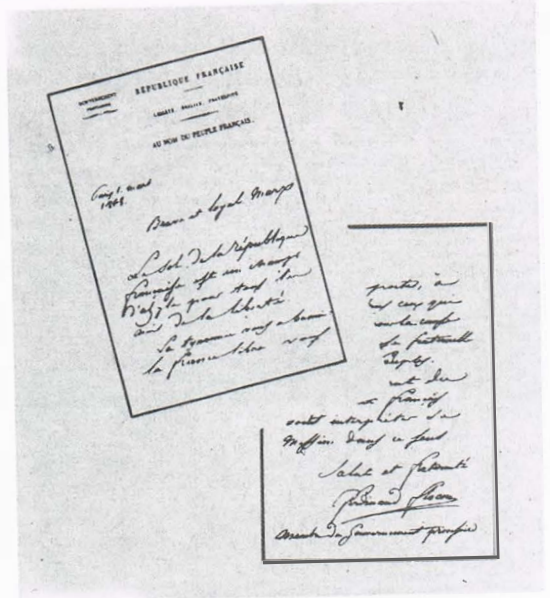 GOUVERNEMENT
PROVISOIRE
RÉPUBLIQUE FRANÇAISE
LIBERTÉ, ÉGALITÉ, FRATERNITÉ
AU NOM DU PEUPLE FRANÇAIS.
1 mars
1848.
Brave et loyal Marx
Le sol de la république
française est un champ
d'asyle pour tous les
amis de la liberté
La tyrannie vous a banni
la france libre vous
portes, à
ceux qui
la fraternelle
peuples.
français
interpréter sa
mission dans ce sens
Salut et fraternité
Ferdinand Flocon
membre du Gouvernement provisoire